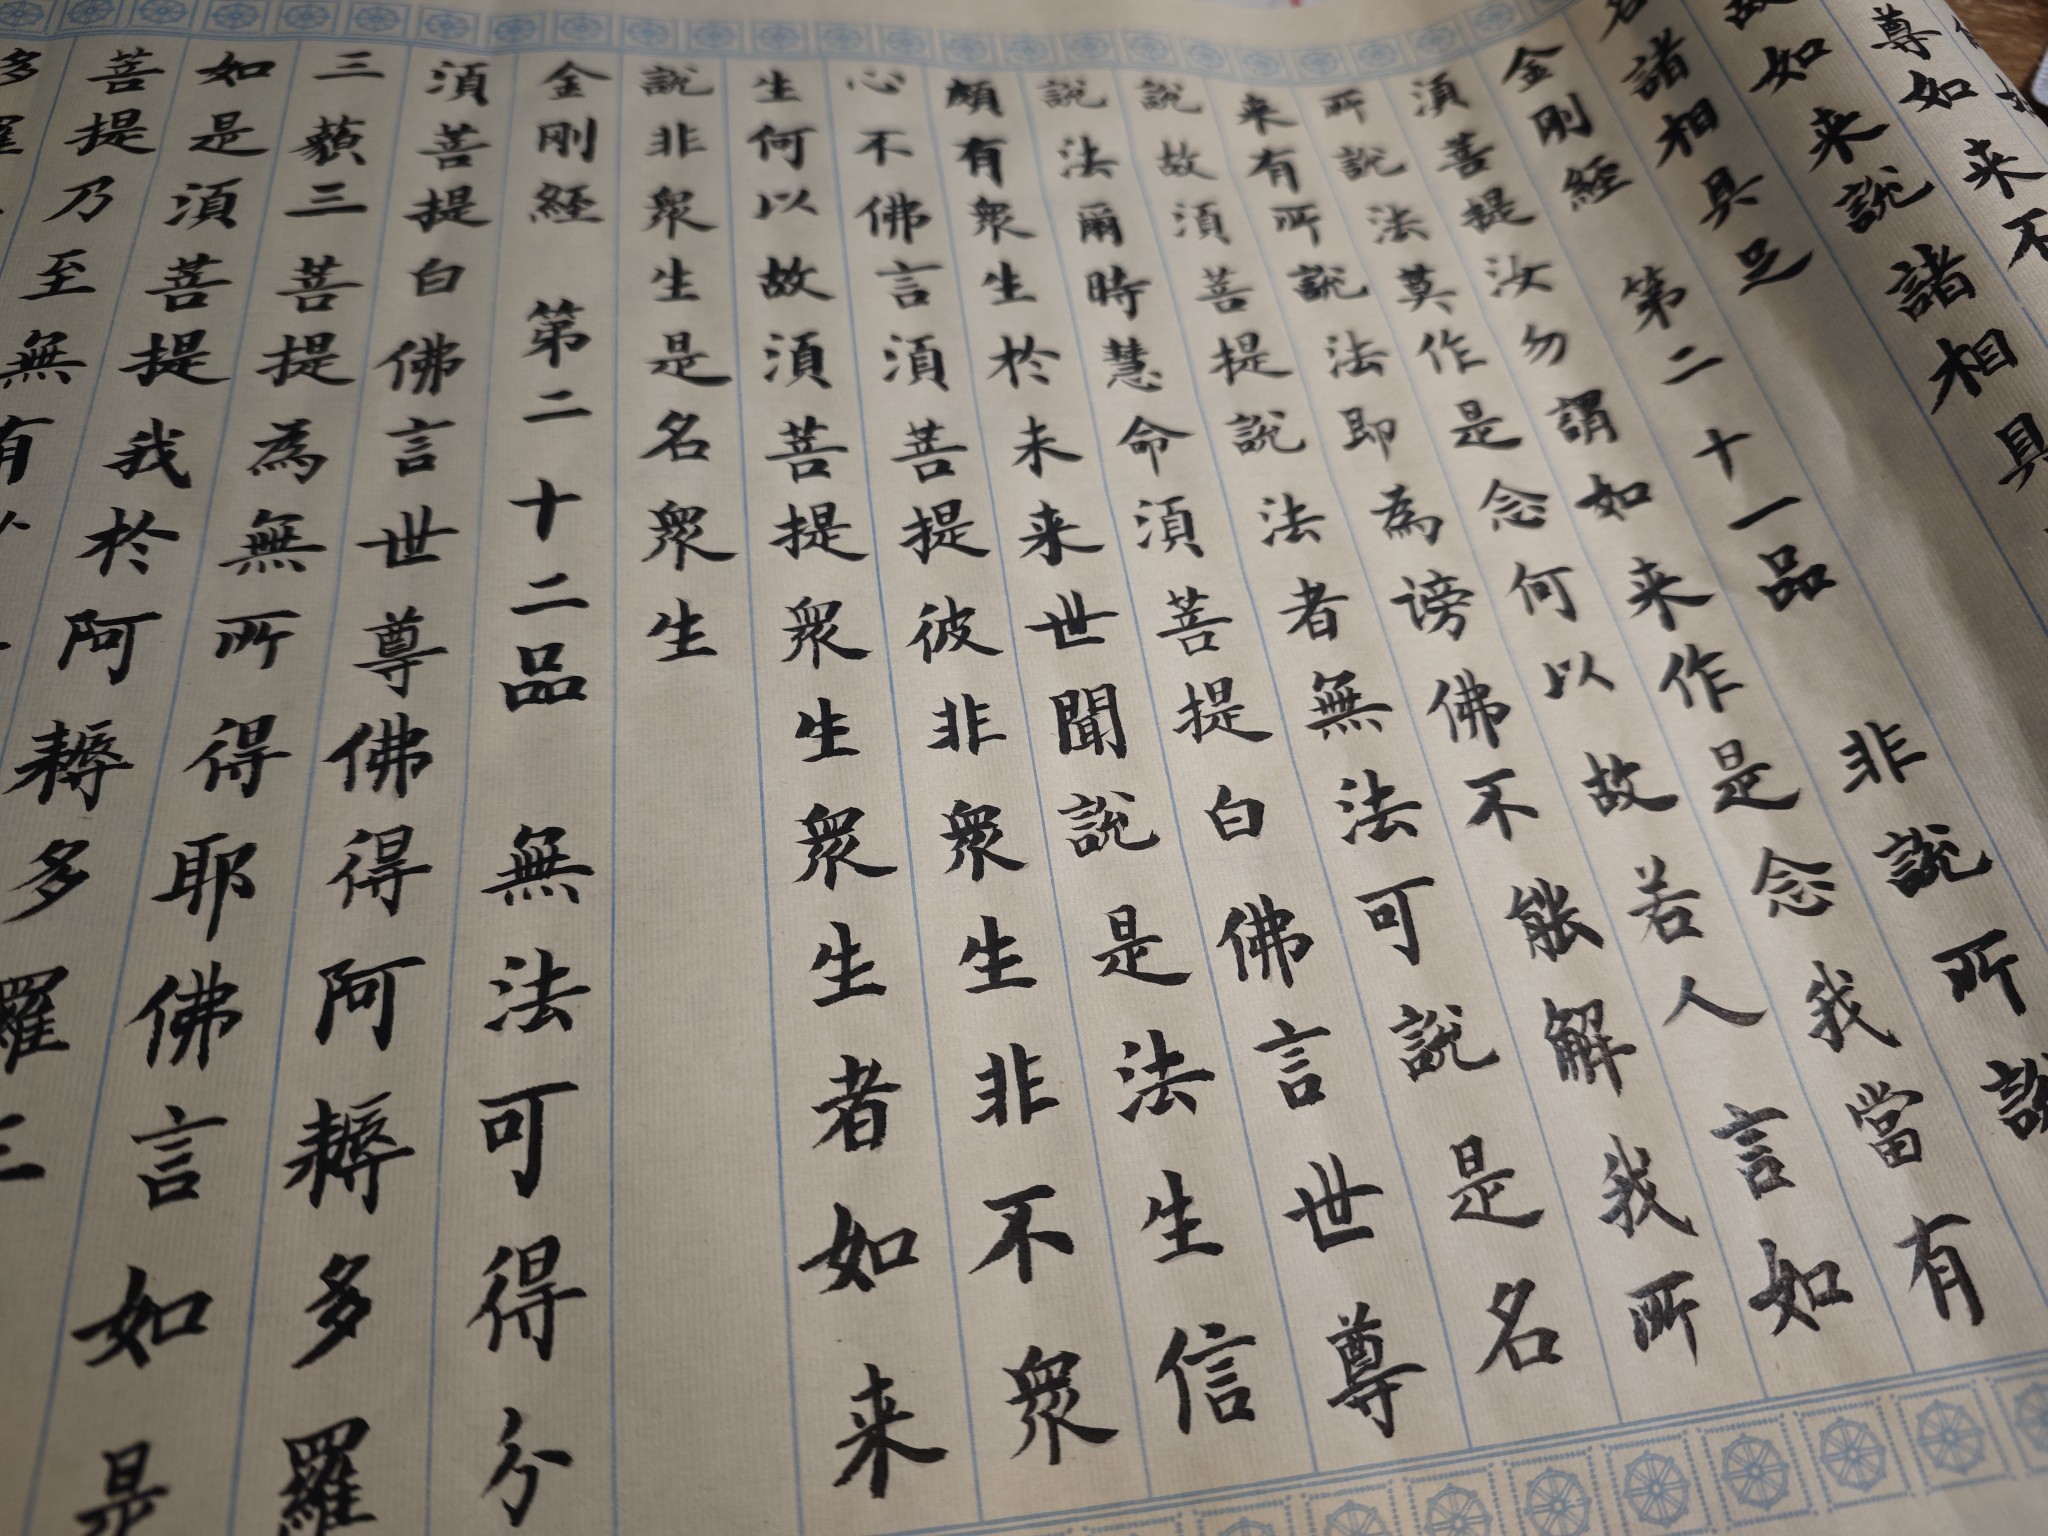 尊如来不
故如来說諸相具
名諸相具足
金剛経 第二十一品 非說所說
須菩提汝勿謂如来作是念我當有
所說法莫作是念何以故若人言如
来有所說法即為謗佛不能解我所
說故須菩提說法者無法可說是名
說法爾時慧命須菩提白佛言世尊
頗有衆生於未来世聞說是法生信
心不佛言須菩提彼非衆生非不衆
生何以故須菩提衆生衆生者如来
說非衆生是名衆生
金剛経 第二十二品 無法可得分
須菩提白佛言世尊佛得阿耨多羅
三藐三菩提為無所得耶佛言如是
如是須菩提我於阿耨多羅三
菩提乃至無有
多羅